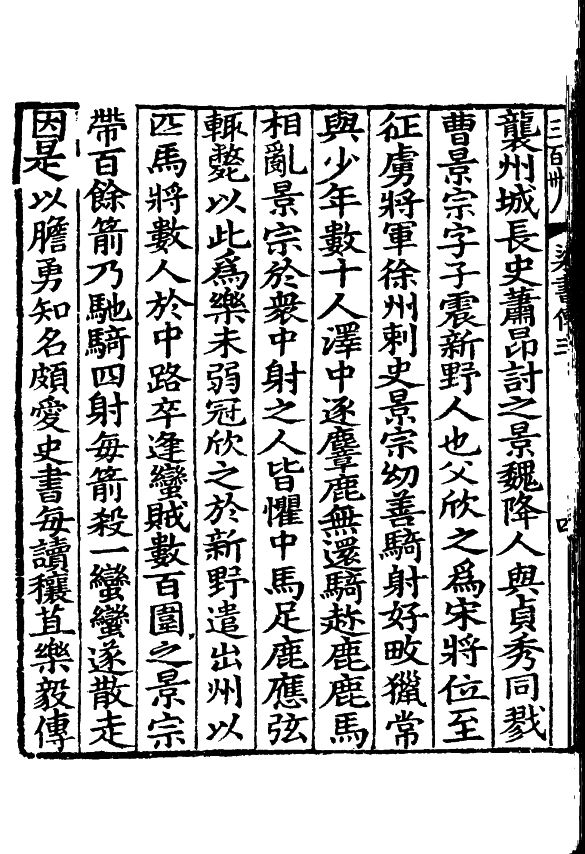 三百卅八 梁書傳三 四
襲州城長史蕭昂討之景魏降人與貞秀同戮
曹景宗字子震新野人也父欣之爲宋將位至
征虜將軍徐州刺史景宗幼善騎射好畋獵常
與少年數十人澤中逐麞鹿無還騎赴鹿鹿馬
相亂景宗於衆中射之人皆懼中馬足鹿應弦
輙斃以此爲樂未弱冠欣之於新野遣出州以
匹馬將數人於中路卒逢蠻賊數百圍之景宗
帶百餘箭乃馳騎四射每箭殺一蠻蠻遂散走
因是以膽勇知名頗愛史書每讀穰苴樂毅傳